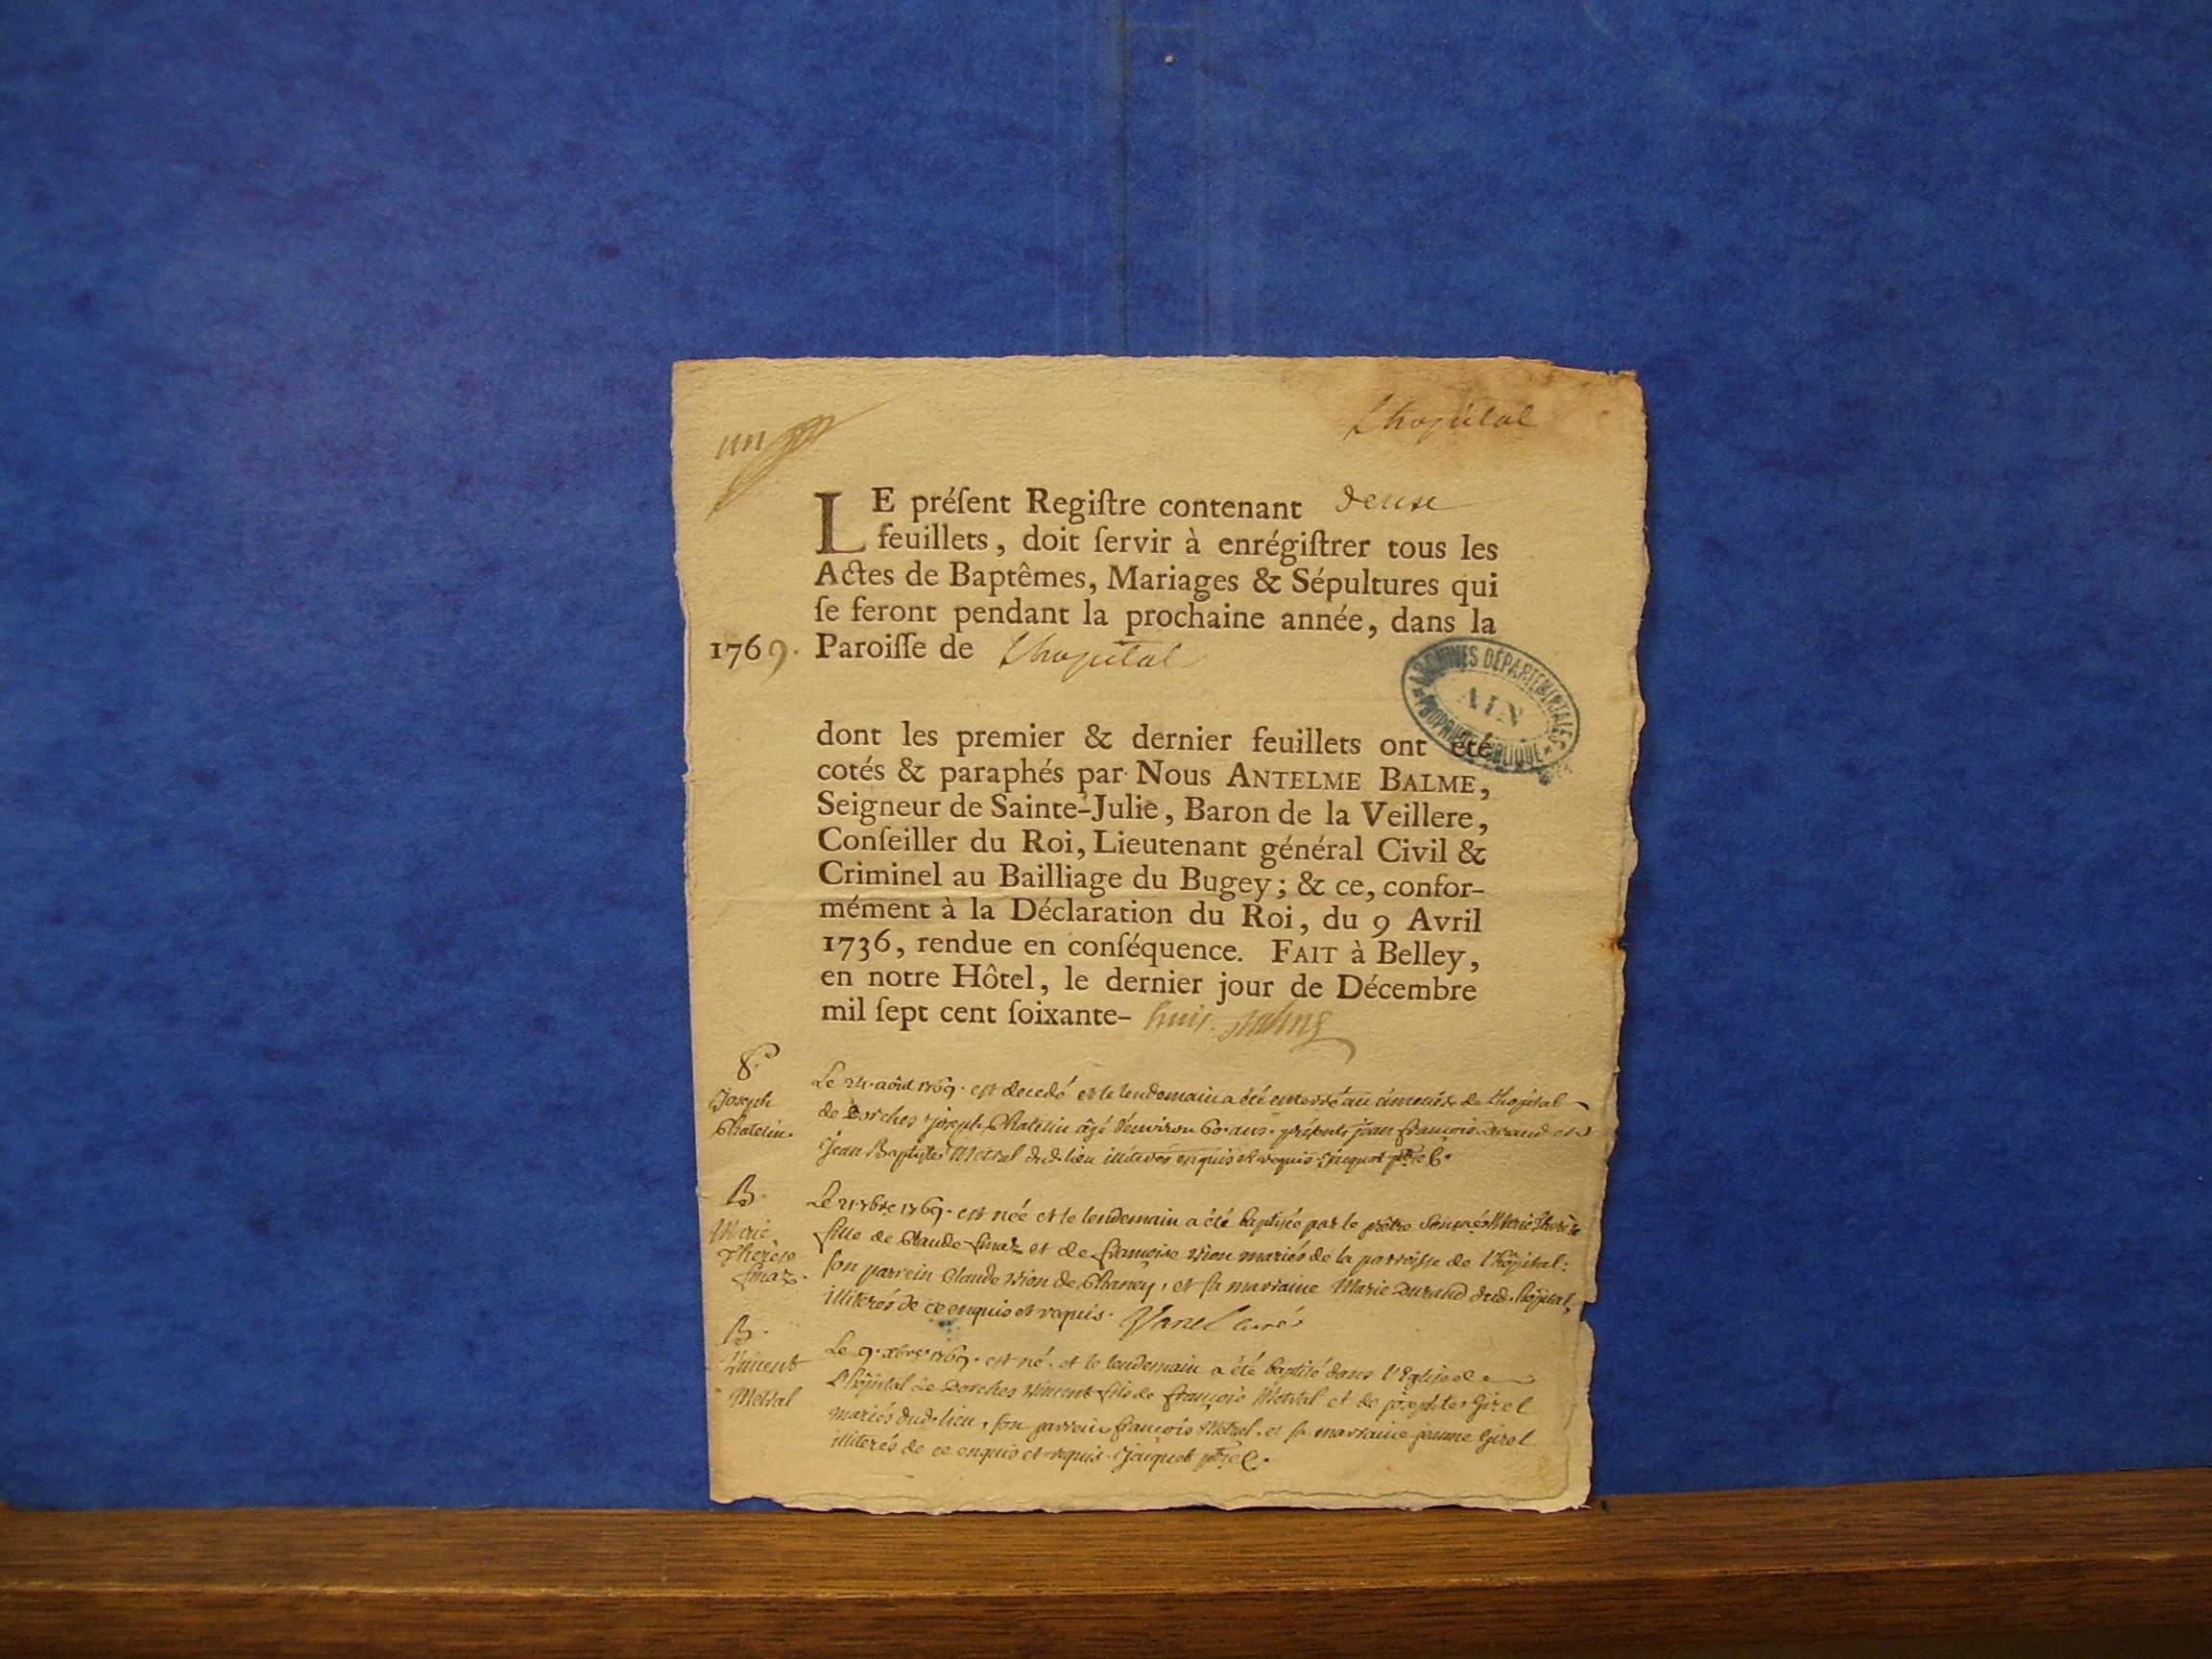 un
Lhopital
LE préſent Regiſtre contenant deux
feuillets, doit ſervir à enrégiſtrer tous les
Actes de Baptêmes, Mariages & Sépultures qui
ſe feront pendant la prochaine année, dans la
1769. Paroiſſe de Lhopital
ARCHIVES DÉPARTEMENTALES
AIN
PROPRIÉTÉ PUBLIQUE
dont les premier & dernier feuillets ont été
cotés & paraphés par Nous ANTELME BALME,
Seigneur de Sainte-Julie, Baron de la Veillere,
Conſeiller du Roi, Lieutenant général Civil &
Criminel au Bailliage du Bugey; & ce, confor-
mément à la Déclaration du Roi, du 9 Avril
1736, rendue en conſéquence. FAIT à Belley,
en notre Hôtel, le dernier jour de Décembre
mil ſept cent ſoixante- huit. Balme
S.
Joseph
Chatelin.
Le 24. aôut 1769. est decedé et le lendemain a été enterré au cimetière de Lhopital
de Dorches joseph Chatelin âgé d'environ 60. ans. présents jean françois Durand et
Jean Baptiste Metral dud. lieu illiterés enquis et requis. Jaquet ptre C.
B.
Marie
Therèse
Smaz.
Le 21. 7bre 1769. est née et le lendemain a été baptisée par le prêtre Marie Therèse
fille de Claude et de françoise vion mariés de la parroisse de l'hôpital:
son parrein Claude vion de Chaney, et sa marraine Marie Durand dud. hôpital,
illiterés de ce enquis et requis. Vanel curé
B.
Vincent
Metral
Le 9. xbre 1769. est né. et le lendemain a été baptisé dans l'Eglise de
Lhôpital de Dorches vincent fils de françois Metral et de josephte Girel
mariés dud. lieu, son parrein françois Metral. et sa marraine jeanne Girel
illiterés de ce enquis et requis. Jaquet ptre C.